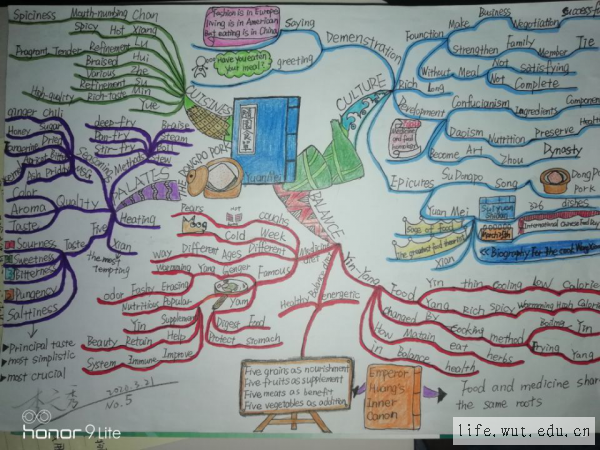 Spiciness
Mouth-numbing
Chan
Spicy
Hot
Xiang
Fragrant
Tender
Refinement
Lu
Braised
Hui
Various
Zhe
Refinement
Min
High-quality
Rich-taste
Yue
CUISINES
Fashion is in Europe
living is in American
But eating is in China
Saying
Have you eaten
your meal?
greeting
Demenstration
CULTURE
Founction
Make
Business
Negetiation
Successful
Strengthen
Family
Member
Tie
Without
Meal
Not
Satisfying
Not
Complete
Rich
Long
Development
Confucianism
ingredients
Components
Daoism
Nutrition
Preserve
Health
Become
Art
Zhou
Dynasty
Epicures
Su Dongpo
Song
DongPo
Pork
Yuan Mei
326
dishes.
Sage of food
The greatest food theorist
Xian
International Chinese Food Day
ginger
Chili
Honey
Sugar
Seasoning
deep-fry
Pan-fry
Stir-fry
Braise
Steam
Boil
Stew
Methods
PALATES
Color
Aroma
Taste
Quality
Heating
The
Xian
the most
tempting
Taste
Sourness
Sweetness
Bitterness
Pungency
Saltiness
Principal taste
most simplistic
most crucial
DONGPO PORK
Yuan Mei
BALANCE
Pears
coughs
Cold
Week
way
Different
Ages
Different
Worming
Ying
Ginger
Famous
odor
Fashy
Erasing
Nutritious
Popular
Yam
Yin
Supplement
Beauty
Retain
Help
System
Immune
Improve
Digest
Food
Protect
Stomach
Medicine
diet
Balanced
diet
Healthy
energetic
Yin-Yang
Food
Yin
thin
Cooling
low
Calories
Yang
Rich
Spicy
Worming
High
Calories
Changed
By
Cooking
method
Boiling
Yin
Frying
Yang
How
Matain
eat
herbs
in
Balance
health
Five grains as nourishment
Five fruits as supplement
Five meats as benefit
Five vegetables as addition
Emperor
Huang's
Inner
Canon
Food and medicine share
the same roots
2020.3.21
No.5
honor 9 Lite
life.wut.edu.cn